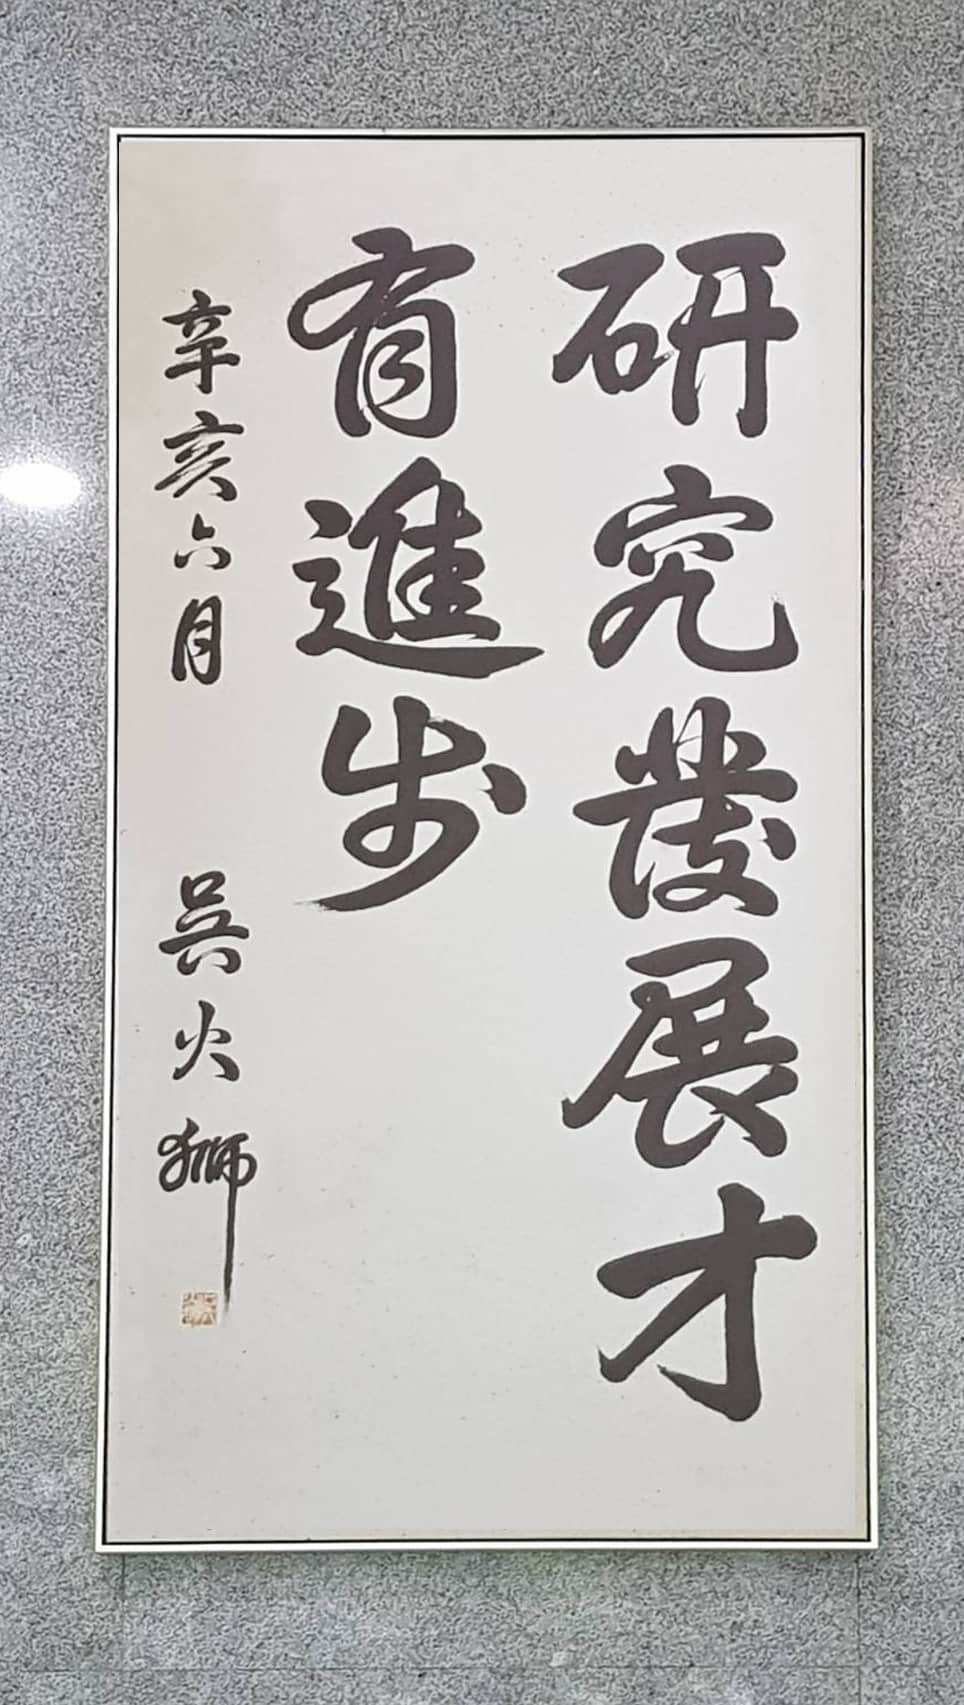 研究發展才
有進步
辛亥六月 吳火獅